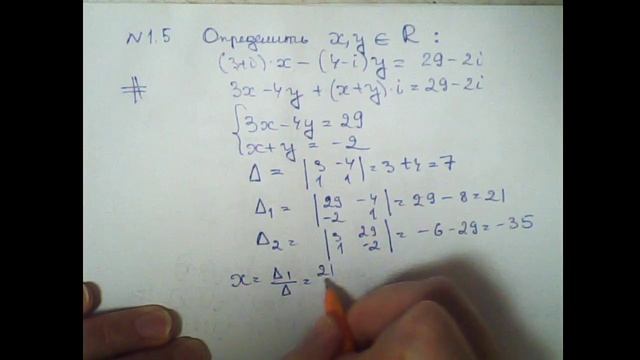 N1.5 Определить x,y ∈ R :
(3+i)·x − (4-i)y = 29-2i
# 3x-4y + (x+y)·i = 29-2i
{3x-4y = 29
x+y = -2
Δ = |3 -4| = 3+4 = 7
|1 1|
Δ1 = |29 -4| = 29-8 = 21
|-2 1|
Δ2 = |3 29| = -6-29 = -35
|1 -2|
x = Δ1/Δ = 21